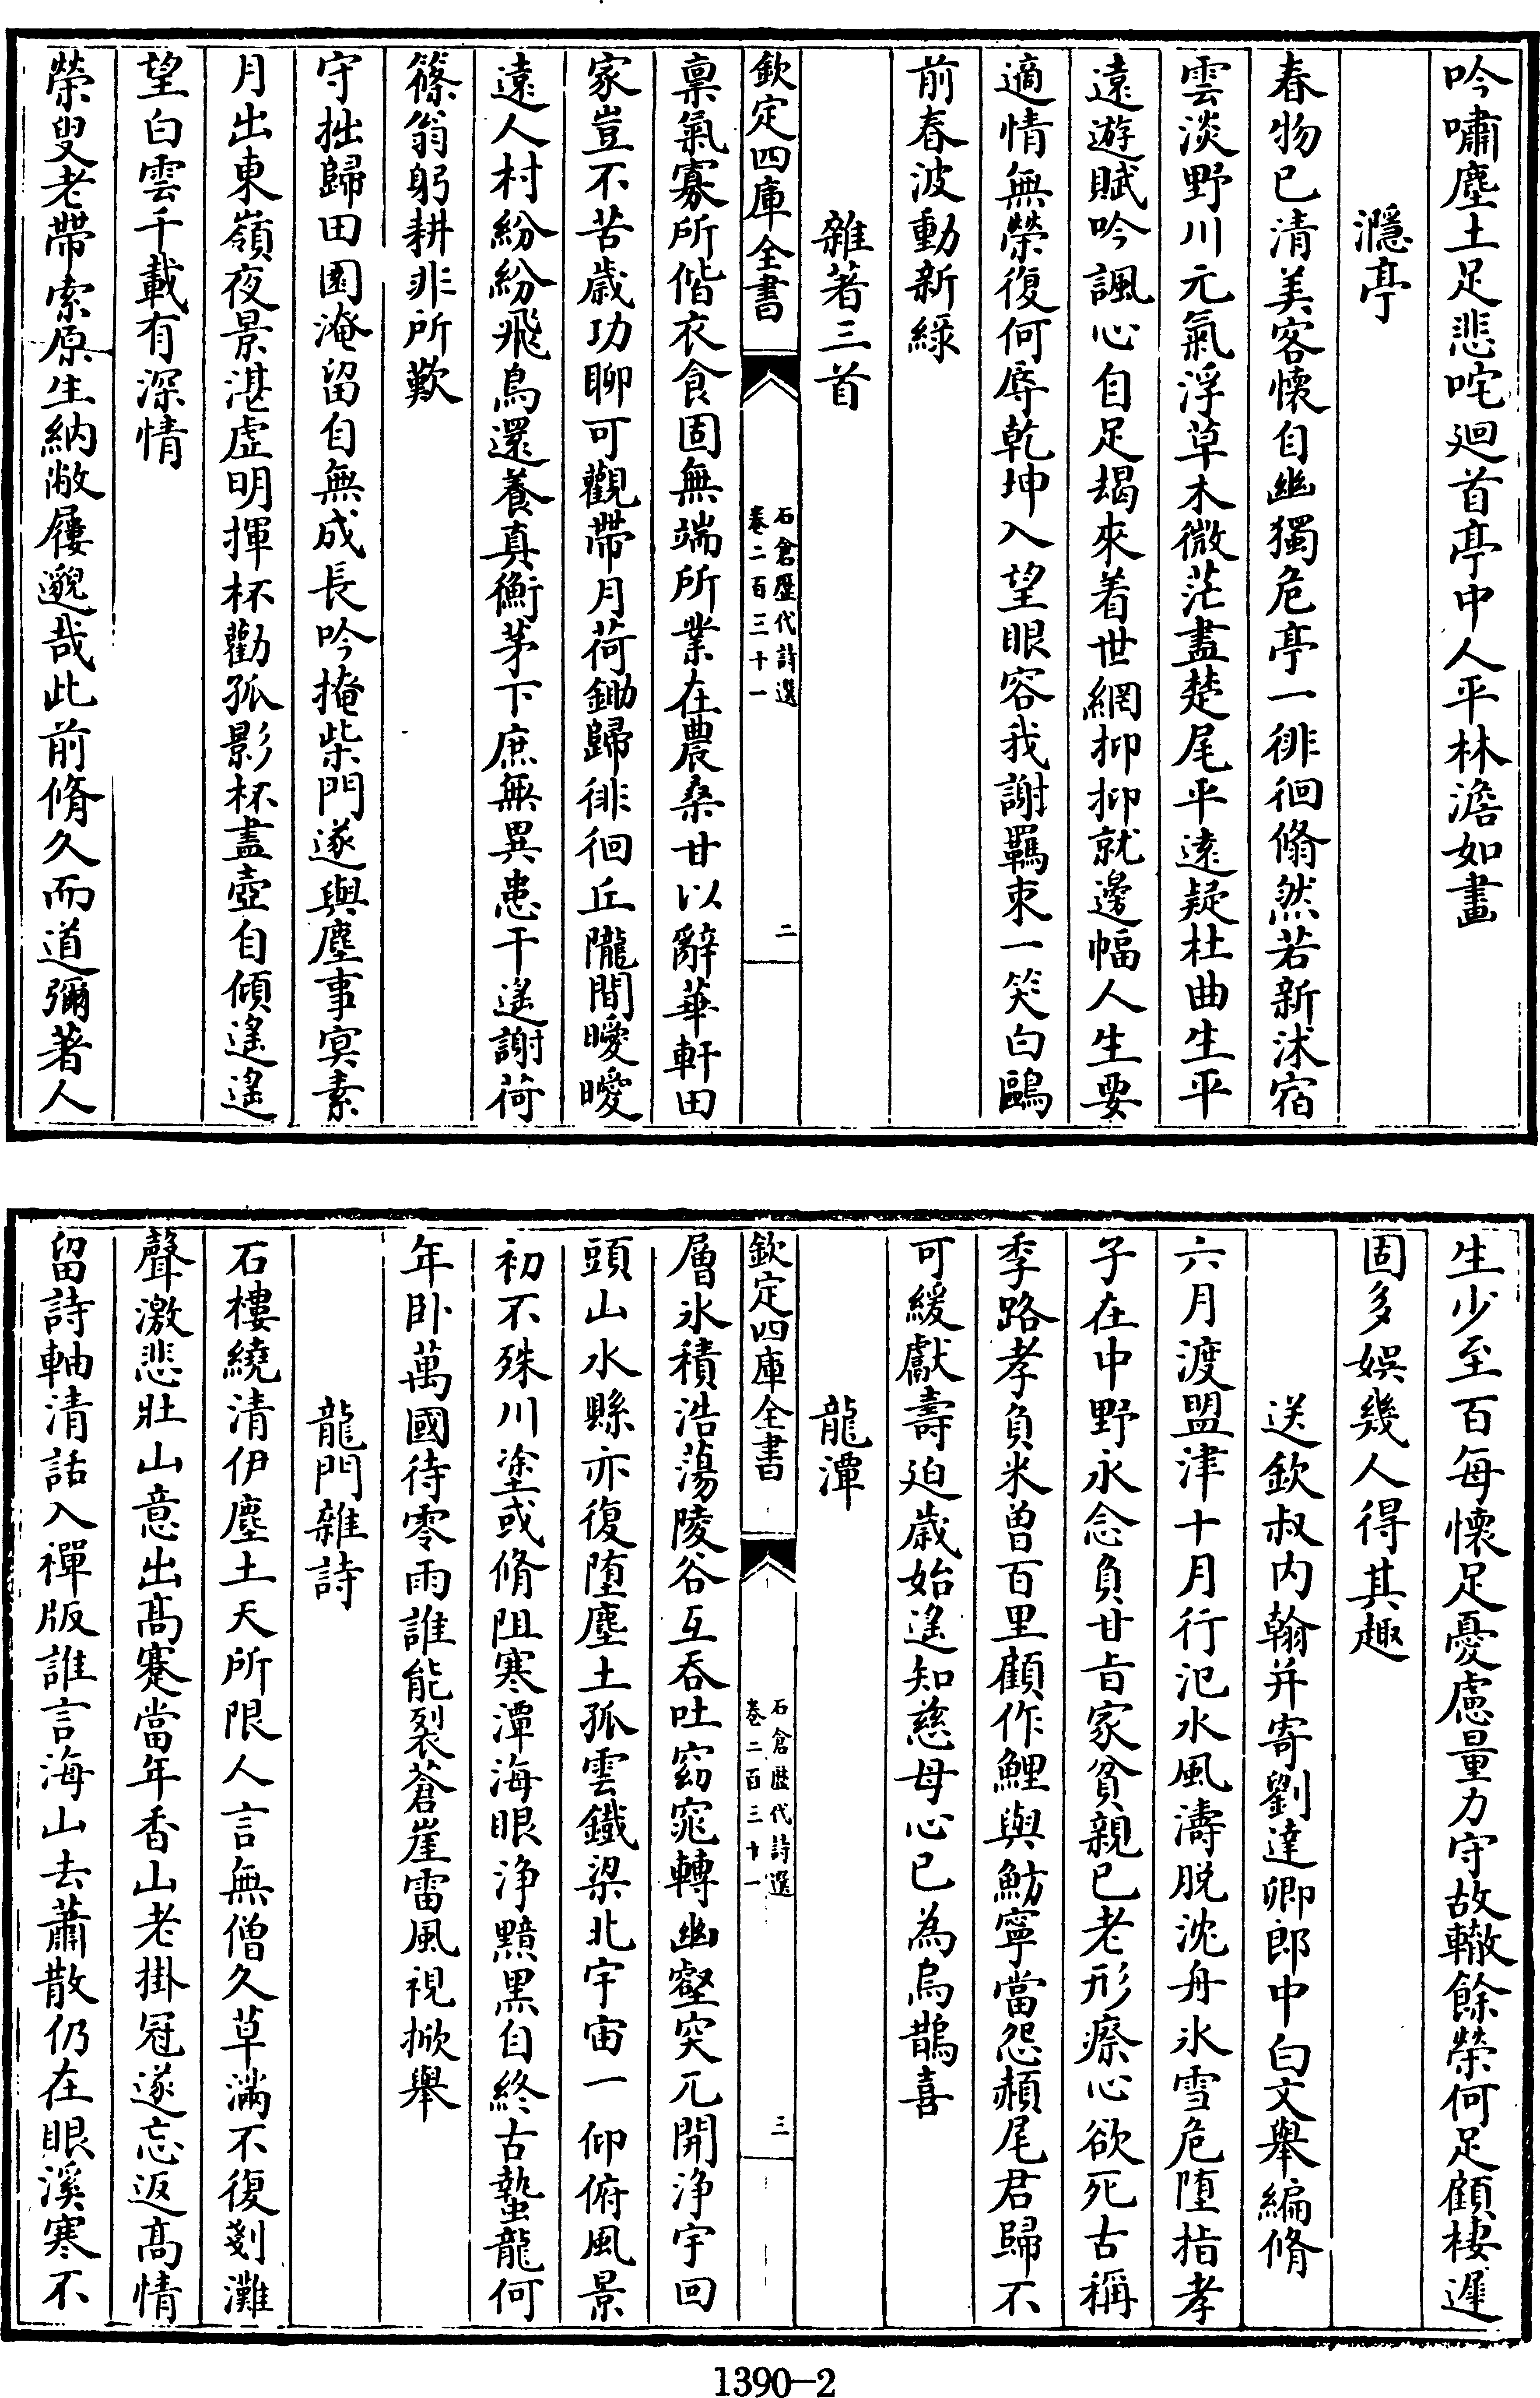 吟嘯塵土足悲咤廻首亭中人平林澹如畫
㶏亭
春物已清美客懷自幽獨危亭一徘徊翛然若新沐宿
雲淡野川元氣浮草木微茫盡楚尾平遠疑杜曲生平
遠遊賦吟諷心自足朅來着世網抑抑就邊幅人生要
適情無榮復何辱乾坤入望眼容我謝羈束一笑白鷗
前春波動新綠
雜著三首
欽定四庫全書
石倉歷代詩選
卷二百三十一
二
稟氣寡所偕衣食固無端所業在農桑甘以辭華軒田
家豈不苦歲功聊可觀帶月荷鋤歸徘徊丘隴間曖曖
遠人村紛紛飛鳥還養真衡茅下庶無異患干遙謝荷
篠翁躬耕非所歎
守拙歸田園淹留自無成長吟掩柴門遂與塵事冥素
月出東嶺夜景湛虛明揮杯勸孤影杯盡壺自傾遙遙
望白雲千載有深情
榮叟老帶索原生納敝屨邈哉此前脩久而道彌著人
生少至百每懷足憂慮量力守故轍餘榮何足顧棲遲
固多娛幾人得其趣
送欽叔内翰并寄劉達卿郎中白文舉編脩
六月渡盟津十月行汜水風濤脫沈舟氷雪危墮指孝
子在中野永念負甘旨家貧親已老形瘵心欲死古稱
季路孝負米曽百里顧作鯉與魴寧當怨頳尾君歸不
可緩獻壽迫歲始遙知慈母心已為烏鵲喜
龍潭
欽定四庫全書
石倉歷代詩選
卷二百三十一
三
層氷積浩蕩陵谷互吞吐窈窕轉幽壑突兀開淨宇回
頭山水縣亦復墮塵土孤雲鐵梁北宇宙一仰俯風景
初不殊川塗或脩阻寒潭海眼淨黯黑自終古蟄龍何
年卧萬國待零雨誰能裂蒼崖雷風視掀舉
龍門雜詩
石樓繞清伊塵土天所限人言無僧久草滿不復剗灘
聲激悲壯山意出高蹇當年香山老掛冠遂忘返高情
留詩軸清話入禪版誰言海山去蕭散仍在眼溪寒不
1390—2